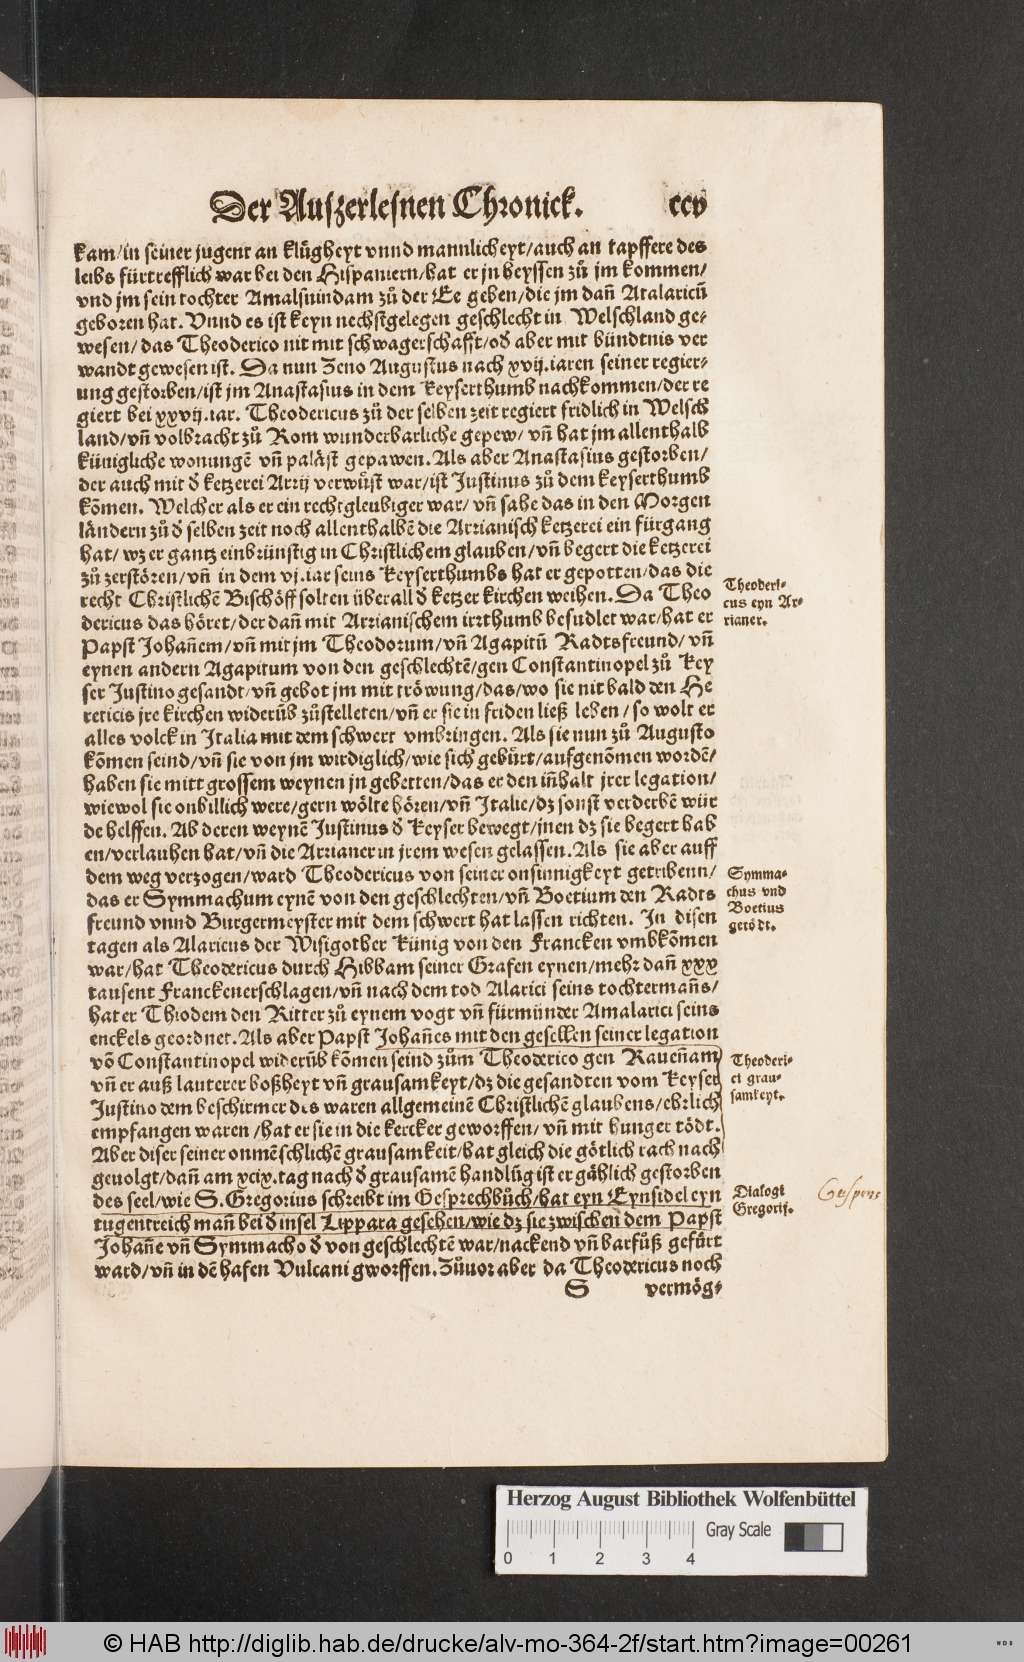 Der Auſzerleſnen Chronick. ccv
kam/in ſeiner jugent an klůgheyt vnnd mannlicheyt/auch an tapffere des
leibs fürtrefflich war bei den Hiſpaniern/hat er jn heyſſen zů jm kommen/
vnd jm ſein tochter Amalſuindam zů der Ee geben/die jm dañ Atalaricū
geboren hat. Vnnd es iſt keyn nechſtgelegen geſchlecht in Welſchland ge⸗
weſen/das Theoderico nit mit ſchwagerſchafft/oď aber mit bündtnis ver
wandt geweſen iſt. Da nun Zeno Auguſtus nach xvij.iaren ſeiner regier⸗
ung geſtorben/iſt jm Anaſtaſius in dem keyſerthumb nachkommen/der re
giert bei xxvij.iar. Theodericus zů der ſelben zeit regiert fridlich in Welſch
land/vñ volbracht zů Rom wunderbarliche gepew/ vñ hat jm allenthalb
künigliche wonungē vñ paläſt gepawen. Als aber Anaſtaſius geſtorben/
der auch mit ď ketzerei Arrij verwůſt war/iſt Juſtinus zů dem keyſerthumb
kōmen. Welcher als er ein rechtgleubiger war/ vñ ſahe das in den Morgen
ländern zů ď ſelben zeit noch allenthalbē die Arrianiſch ketzerei ein fürgang
hat/ wz er gantz einbrünſtig in Chriſtlichem glauben/vñ begert die ketzerei
zů zerſtören/vñ in dem vj.iar ſeins keyſerthumbs hat er gepotten/das die
recht Chriſtlichē Biſchöff ſolten überall ď ketzer kirchen weihen. Da Theo
dericus das höret/der dañ mit Arrianiſchem irrthumb beſudlet war/hat er
Papſt Johañem/vñ mit jm Theodorum/vñ Agapitū Radtsfreund/ vñ
eynen andern Agapitum von den geſchlechtē/gen Conſtantinopel zů key
ſer Juſtino geſandt/vñ gebot jm mit tröwung/das/wo ſie nit bald den He
reticis jre kirchen widerūb zůſtelleten/vñ er ſie in friden ließ leben/ ſo wolt er
alles volck in Italia mit dem ſchwert vmbringen. Als ſie nun zů Auguſto
kōmen ſeind/vñ ſie von jm wirdiglich/wie ſich gebürt/aufgenōmen wordē/
haben ſie mitt groſſem weynen jn gebetten/das er den iñhalt jrer legation/
wiewol ſie onbillich were/gern wölte hören/vñ Italie/dz ſonſt verderbē wür
de helffen. Ab deren weynē Juſtinus ď keyſer bewegt/jnen dz ſie begert hab
en/verlauhen hat/vñ die Arrianer in jrem weſen gelaſſen. Als ſie aber auff
dem weg verzogen/ward Theodericus von ſeiner onſinnigkeyt getribenn/
das er Symmachum eynē von den geſchlechten/vñ Boetium den Radts
freund vnnd Burgermeyſter mit dem ſchwert hat laſſen richten. In diſen
tagen als Alaricus der Wiſigother künig von den Francken vmbkōmen
war/hat Theodericus durch Hibbam ſeiner Grafen eynen/mehr dañ xxx
tauſent Francken erſchlagen/vñ nach dem tod Alarici ſeins tochtermañs/
hat er Thiodem den Ritter zů eynem vogt vñ fürmünder Amalarici ſeins
enckels geordnet. Als aber Papſt Johañes mit den geſellen ſeiner legation
vō Conſtantinopel widerūb kōmen ſeind zům Theoderico gen Raueñam
vñ er auß lauterer boßheyt vñ grauſamkeyt/dz die geſandten vom keyſer
Juſtino dem beſchirmer des waren allgemeinē Chriſtlichē glaubens/ehrlich
empfangen waren/hat er ſie in die kercker geworffen/ vñ mit hunger tödt.
Aber diſer ſeiner onmēſchlichē grauſamkeit/hat gleich die götlich rach nach
geuolgt/dañ am xcix.tag nach ď grauſamē handlūg iſt er gählich geſtorben
des ſeel/wie S.Gregorius ſchreibt im Geſprechbůch/hat eyn Eynſidel eyn
tugentreich mañ bei ď inſel Lippara geſehen/wie dz ſie zwiſchen dem Papſt
Johañe vñ Symmacho ď von geſchlechtē war/nackend vñ barfůß gefürt
ward/vñ in dē hafen Vulcani gworffen. Zůuor aber da Theodericus noch
S vermög⸗
Theoderi⸗
cus eyn Ar⸗
rianer.
Symma⸗
chus vnd
Boetius
getödt.
Theoderi⸗
ci grau⸗
ſamkeyt.
Dialogi
Gregorij.
Geſpens
Herzog August Bibliothek Wolfenbüttel
0 1 2 3 4 Gray Scale
© HAB http://diglib.hab.de/drucke/alv-mo-364-2f/start.htm?image=00261